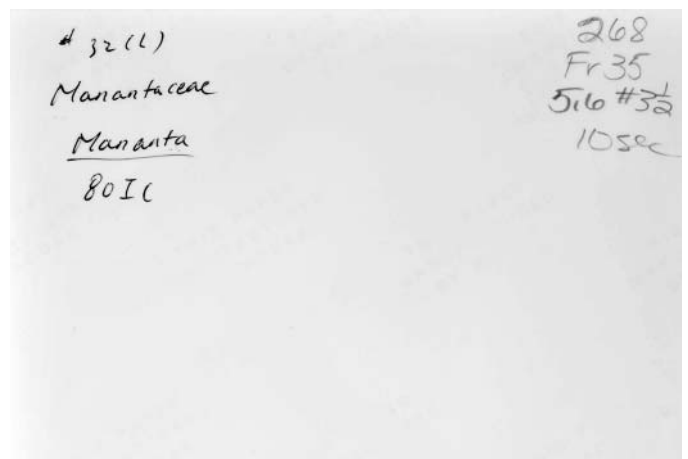 # 32(L)
Marantaceae
Maranta
80IC
268
Fr 35
5.6 #3½
10sec